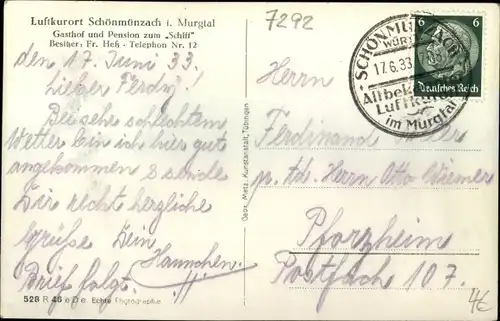 Luftkurort Schönmünzach i. Murgtal
Gasthof und Pension zum „Schiff"
Besitzer: Fr. Heß - Telephon Nr. 12
7292
SCHÖNMÜNZACH
WÜRTT
17.6.33
Altbek
Luftkurort
im Murgtal
6 6
Deutsches Reich
den 17. Juni 33.
Lieber Ferdy!
Bei sehr schlechtem
Wetter bin ich hier gut
angekommen & sende
Dir recht herzliche
Grüße Dein
Hannchen.
Brief folgt.
528 R 46 e D e. Echte Photographie
Gebr. Metz, Kunstanstalt, Tübingen
Herrn
Ferdinand
p. Ad. Herrn Otto
Pforzheim
Postfach 107.
4€